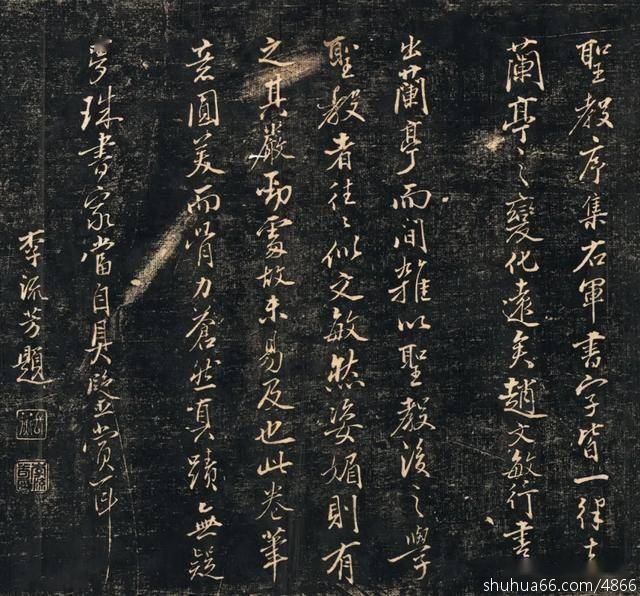 聖教序集右軍書字皆一律去
蘭亭之變化遠矣趙文敏行書
出蘭亭而間雜以聖教後之學
聖教者往〻似文敏然姿媚則有
之其嚴勁處故未易及也此卷筆
意圓美而骨力蒼然真蹟無疑
珠書家當自具賞耳
李流芳題
shuhua66.com/4866